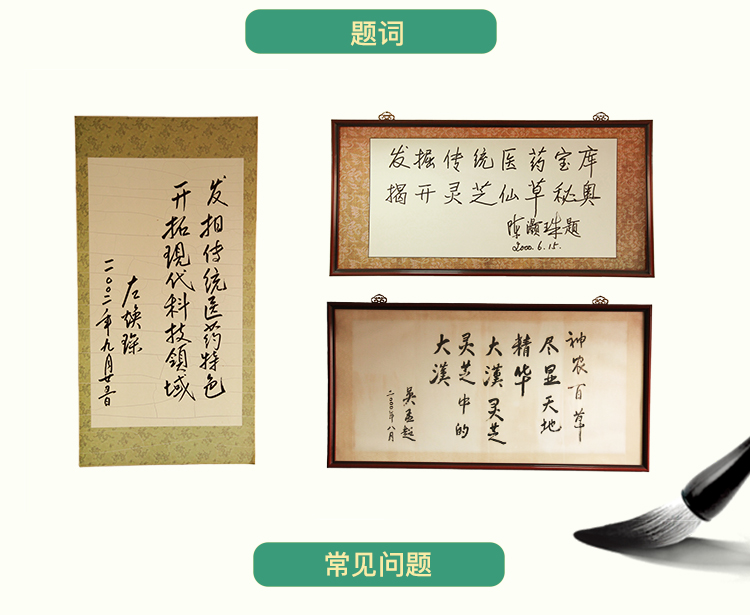 题词
发扬传统医药特色
开拓現代科技領域
左焕琛
二〇〇二年九月
发掘传统医药宝库
揭开灵芝仙草秘奥
陈灏珠题
2000.6.15.
神农百草
尽显天地
精华
大漢灵芝
灵芝中的
大漢
吴孟超
二〇〇〇年八月
常见问题